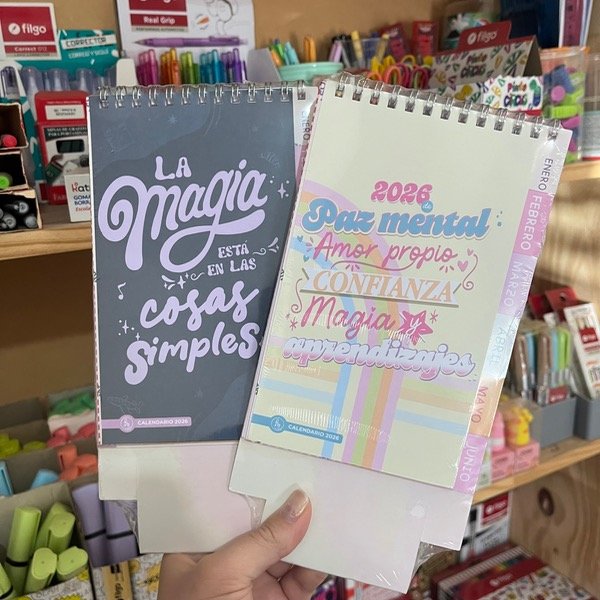 filgo
Correct 012
CORRECTOR
Real Grip
filgo
Pinto
LA
Magia
ESTÁ
EN LAS
cosas
simples
CALENDARIO 2026
2026
de
Paz mental
Amor propio
CONFIANZA
Magia y
aprendizajes
CALENDARIO 2026
ENERO
FEBRERO
MARZO
ABRIL
MAYO
JUNIO